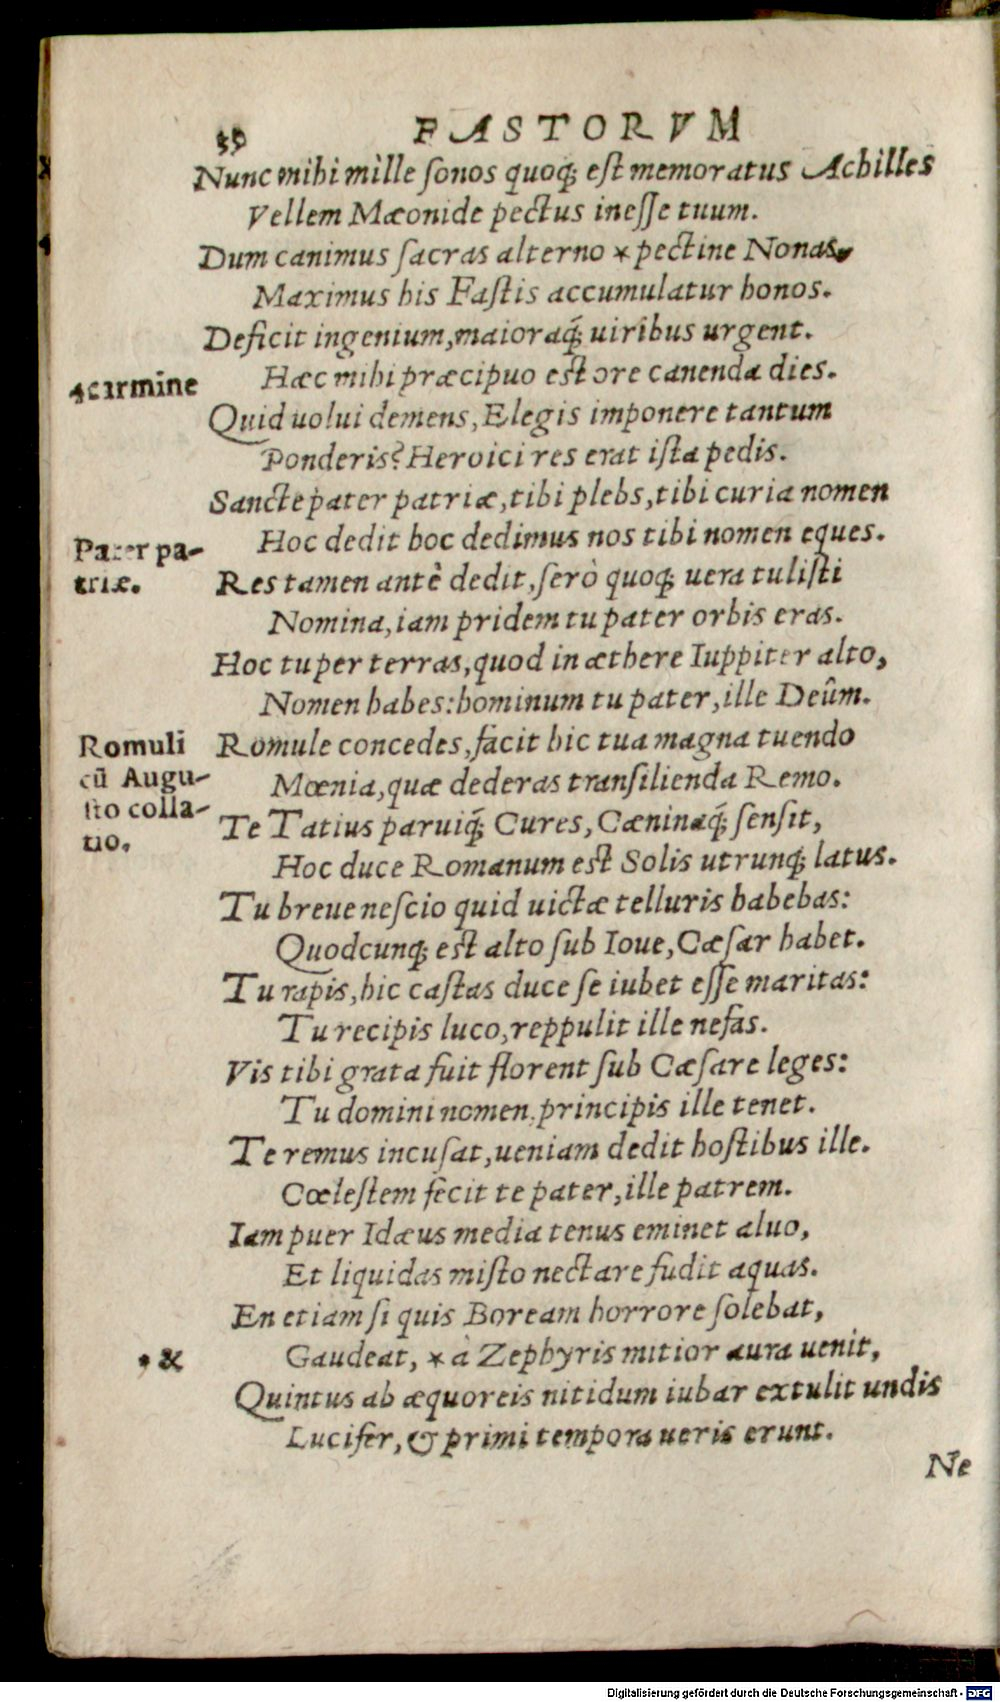 39
FASTORVM
Nunc mihi mille ſonos quoq; eſt memoratus Achilles
Vellem Mæonide pectus ineſſe tuum.
Dum canimus ſacras alterno * pectine Nonas,
Maximus his Faſtis accumulatur honos.
Deficit ingenium, maioraq́; uiribus urgent.
*carmine
Hæc mihi præcipuo eſt ore canenda dies.
Quid uolui demens, Elegis imponere tantum
Ponderis? Heroici res erat iſta pedis.
Sancte pater patriæ, tibi plebs, tibi curia nomen
Hoc dedit hoc dedimus nos tibi nomen eques.
Pater pa-
triæ.
Res tamen antè dedit, ſerò quoq; uera tuliſti
Nomina, iam pridem tu pater orbis eras.
Hoc tu per terras, quod in æthere Iuppiter alto,
Nomen habes: hominum tu pater, ille Deûm.
Romuli
cū Augu-
ſto colla-
tio.
Romule concedes, facit hic tua magna tuendo
Mœnia, quæ dederas tranſilienda Remo.
Te Tatius paruiq́; Cures, Cæninaq́; ſenſit,
Hoc duce Romanum eſt Solis utrunq; latus.
Tu breue neſcio quid uictæ telluris habebas:
Quodcunq; eſt alto ſub Ioue, Cæſar habet.
Tu rapis, hic caſtas duce ſe iubet eſſe maritas:
Tu recipis luco, reppulit ille nefas.
Vis tibi grata fuit florent ſub Cæſare leges:
Tu domini nomen, principis ille tenet.
Te remus incuſat, ueniam dedit hoſtibus ille.
Cœleſtem fecit te pater, ille patrem.
Iam puer Idæus media tenus eminet aluo,
Et liquidas miſto nectare fudit aquas.
En etiam ſi quis Boream horrore ſolebat,
* &
Gaudeat, * à Zephyris mitior aura uenit,
Quintus ab æquoreis nitidum iubar extulit undis
Lucifer, & primi tempora ueris erunt.
Ne
Digitalisierung gefördert durch die Deutsche Forschungsgemeinschaft - DFG